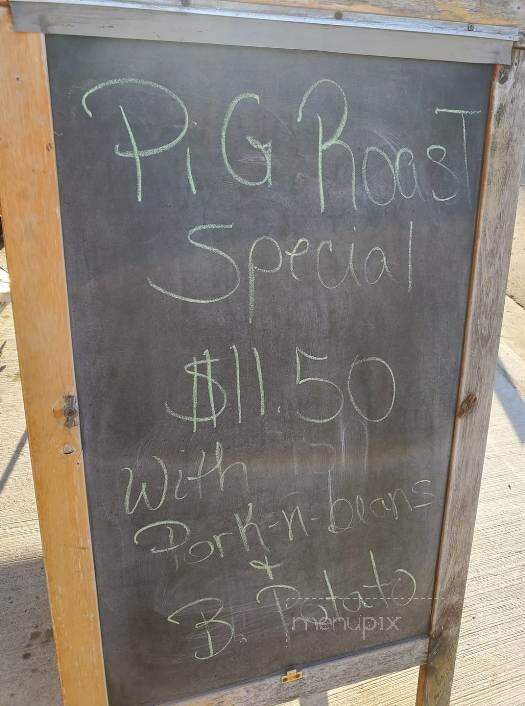 PiG Roast
Special
$11.50
With
Pork-n-beans
+
B. Potato
menupix